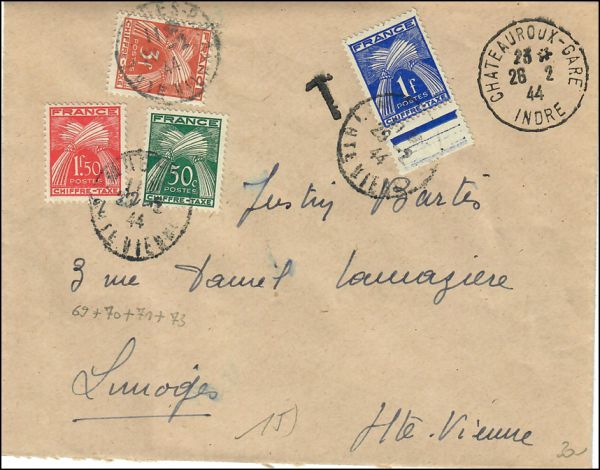 FRANCE
3F
POSTES
CHIFFRE-TAXE
FRANCE
1F
POSTES
CHIFFRE-TAXE
T
CHATEAUROUX-GARE
23
26 2
44
INDRE
FRANCE
1F.50
POSTES
CHIFFRE-TAXE
FRANCE
50c
POSTES
CHIFFRE-TAXE
44
HTE VIENNE
44
HTE VIENNE
Justin Bartès
3 rue Daniel Lamazière
69+70+71+73
Limoges
15)
Hte-Vienne